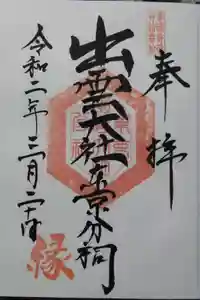 奉拝
出雲大社東京分祠
令和二年三月二十日
縁